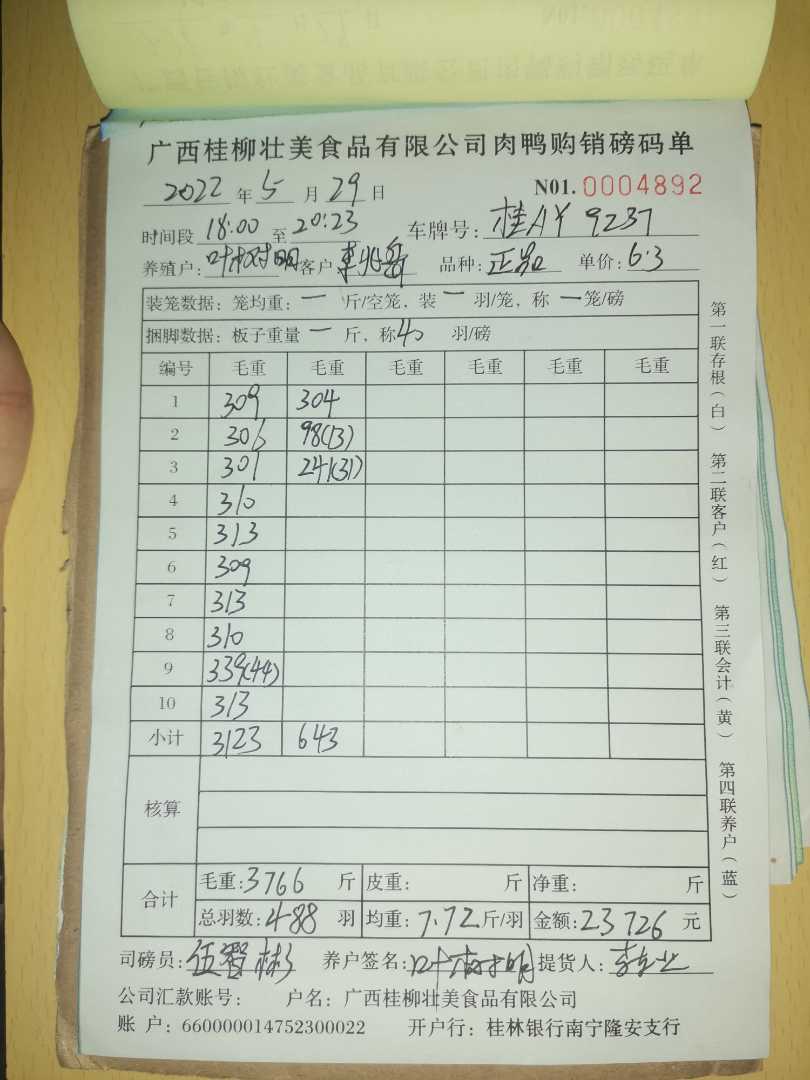 广西桂柳壮美食品有限公司肉鸭购销磅码单
2022 年 5 月 29 日 N01. 0004892
时间段 18:00 至 20:23 车牌号: 桂AY 9237
养殖户: 叶树明 客户 品种: 正品 单价: 6.3
装笼数据: 笼均重: 一 斤/空笼, 装 一 羽/笼, 称 一 笼/磅
捆脚数据: 板子重量 一 斤, 称 40 羽/磅
编号 毛重 毛重 毛重 毛重 毛重 毛重
1 309 304
2 306 98(13)
3 301 241(31)
4 310
5 313
6 309
7 313
8 310
9 339(44)
10 313
小计 3123 643
核算
合计 毛重: 3766 斤 皮重: 斤 净重: 斤
总羽数: 488 羽 均重: 7.72 斤/羽 金额: 23726 元
司磅员: 伍智彬 养户签名: 叶树明 提货人:
公司汇款账号: 户名: 广西桂柳壮美食品有限公司
账 户: 660000014752300022 开户行: 桂林银行南宁隆安支行
第一联存根(白) 第二联客户(红) 第三联会计(黄) 第四联养户(蓝)